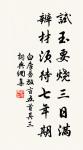 試玉要燒三日滿
辨材須待七年期
白居易放言五首其三
詞典網集